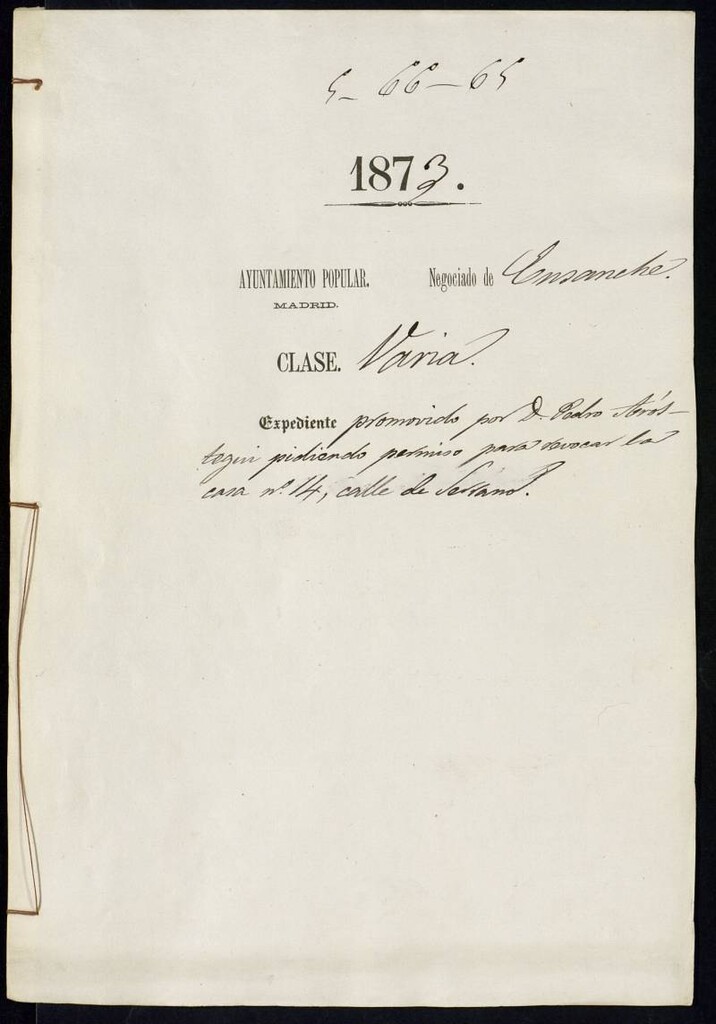 5-66-65
1873.
AYUNTAMIENTO POPULAR. Negociado de Ensanche.
MADRID.
CLASE. Varia.
Expediente promovido por D. Pedro Arós-
tegui pidiendo permiso para revocar la
casa nº 14, calle de Serrano.